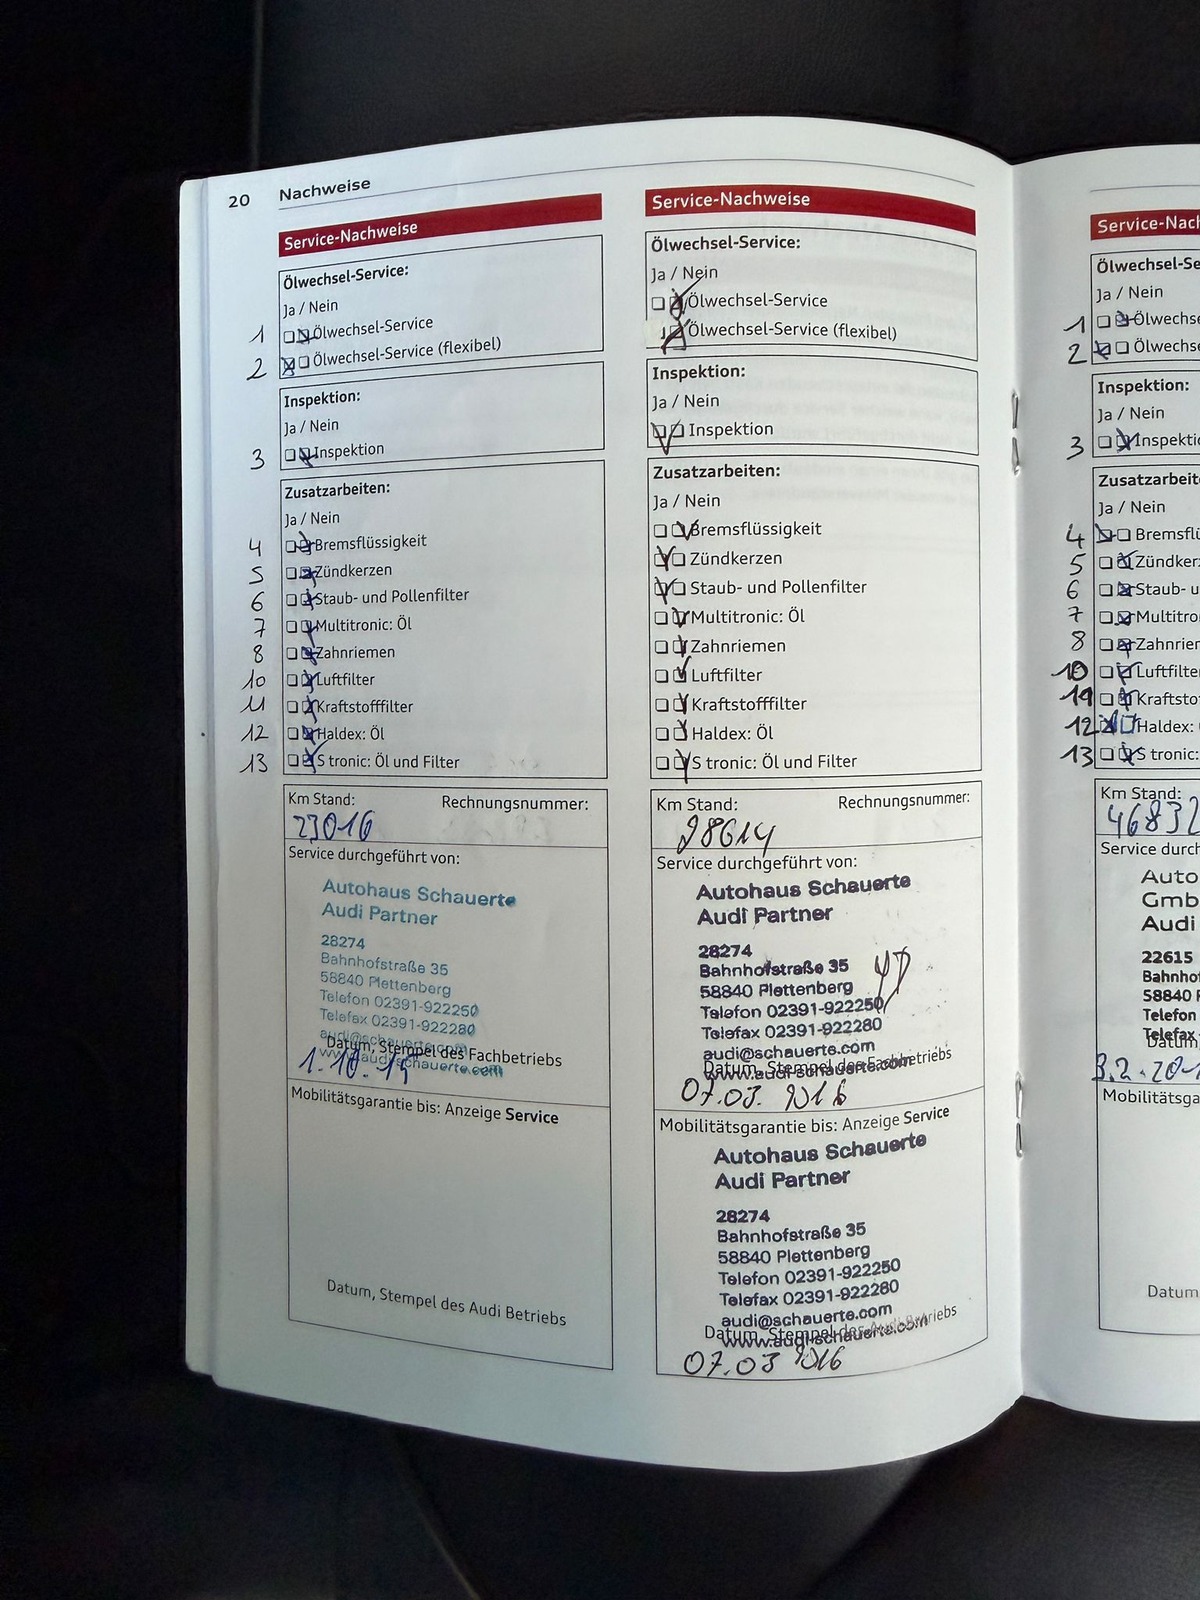 20 Nachweise
Service-Nachweise
Ölwechsel-Service:
Ja / Nein
1 Ölwechsel-Service
2 Ölwechsel-Service (flexibel)
Inspektion:
Ja / Nein
3 Inspektion
Zusatzarbeiten:
Ja / Nein
4 Bremsflüssigkeit
5 Zündkerzen
6 Staub- und Pollenfilter
7 Multitronic: Öl
8 Zahnriemen
10 Luftfilter
11 Kraftstofffilter
12 Haldex: Öl
13 S tronic: Öl und Filter
Km Stand: Rechnungsnummer:
23016
Service durchgeführt von:
Autohaus Schauerte
Audi Partner
28274
Bahnhofstraße 35
58840 Plettenberg
Telefon 02391-922250
Telefax 02391-922280
audi@schauerte.com
Datum, Stempel des Fachbetriebs
www.audi-schauerte.com
1.10.15
Mobilitätsgarantie bis: Anzeige Service
Datum, Stempel des Audi Betriebs
Service-Nachweise
Ölwechsel-Service:
Ja / Nein
Ölwechsel-Service
Ölwechsel-Service (flexibel)
Inspektion:
Ja / Nein
Inspektion
Zusatzarbeiten:
Ja / Nein
Bremsflüssigkeit
Zündkerzen
Staub- und Pollenfilter
Multitronic: Öl
Zahnriemen
Luftfilter
Kraftstofffilter
Haldex: Öl
S tronic: Öl und Filter
Km Stand: Rechnungsnummer:
28614
Service durchgeführt von:
Autohaus Schauerte
Audi Partner
28274
Bahnhofstraße 35
58840 Plettenberg
Telefon 02391-922250
Telefax 02391-922280
audi@schauerte.com
Datum, Stempel des Fachbetriebs
www.audi-schauerte.com
07.03.2016
Mobilitätsgarantie bis: Anzeige Service
Autohaus Schauerte
Audi Partner
28274
Bahnhofstraße 35
58840 Plettenberg
Telefon 02391-922250
Telefax 02391-922280
audi@schauerte.com
Datum, Stempel des Audi Betriebs
www.audi-schauerte.com
07.03 2016
Service-Nach
Ölwechsel-Se
Ja / Nein
1 Ölwechse
2 Ölwechse
Inspektion:
Ja / Nein
3 Inspektio
Zusatzarbeite
Ja / Nein
4 Bremsflü
5 Zündker
6 Staub- u
7 Multitro
8 Zahnrier
10 Luftfilte
11 Kraftsto
12 Haldex:
13 S tronic:
Km Stand:
46832
Service durch
Auto
Gmb
Audi
22615
Bahnhof
58840 P
Telefon
Telefax
Datum,
3.2.201
Mobilitätsga
Datum